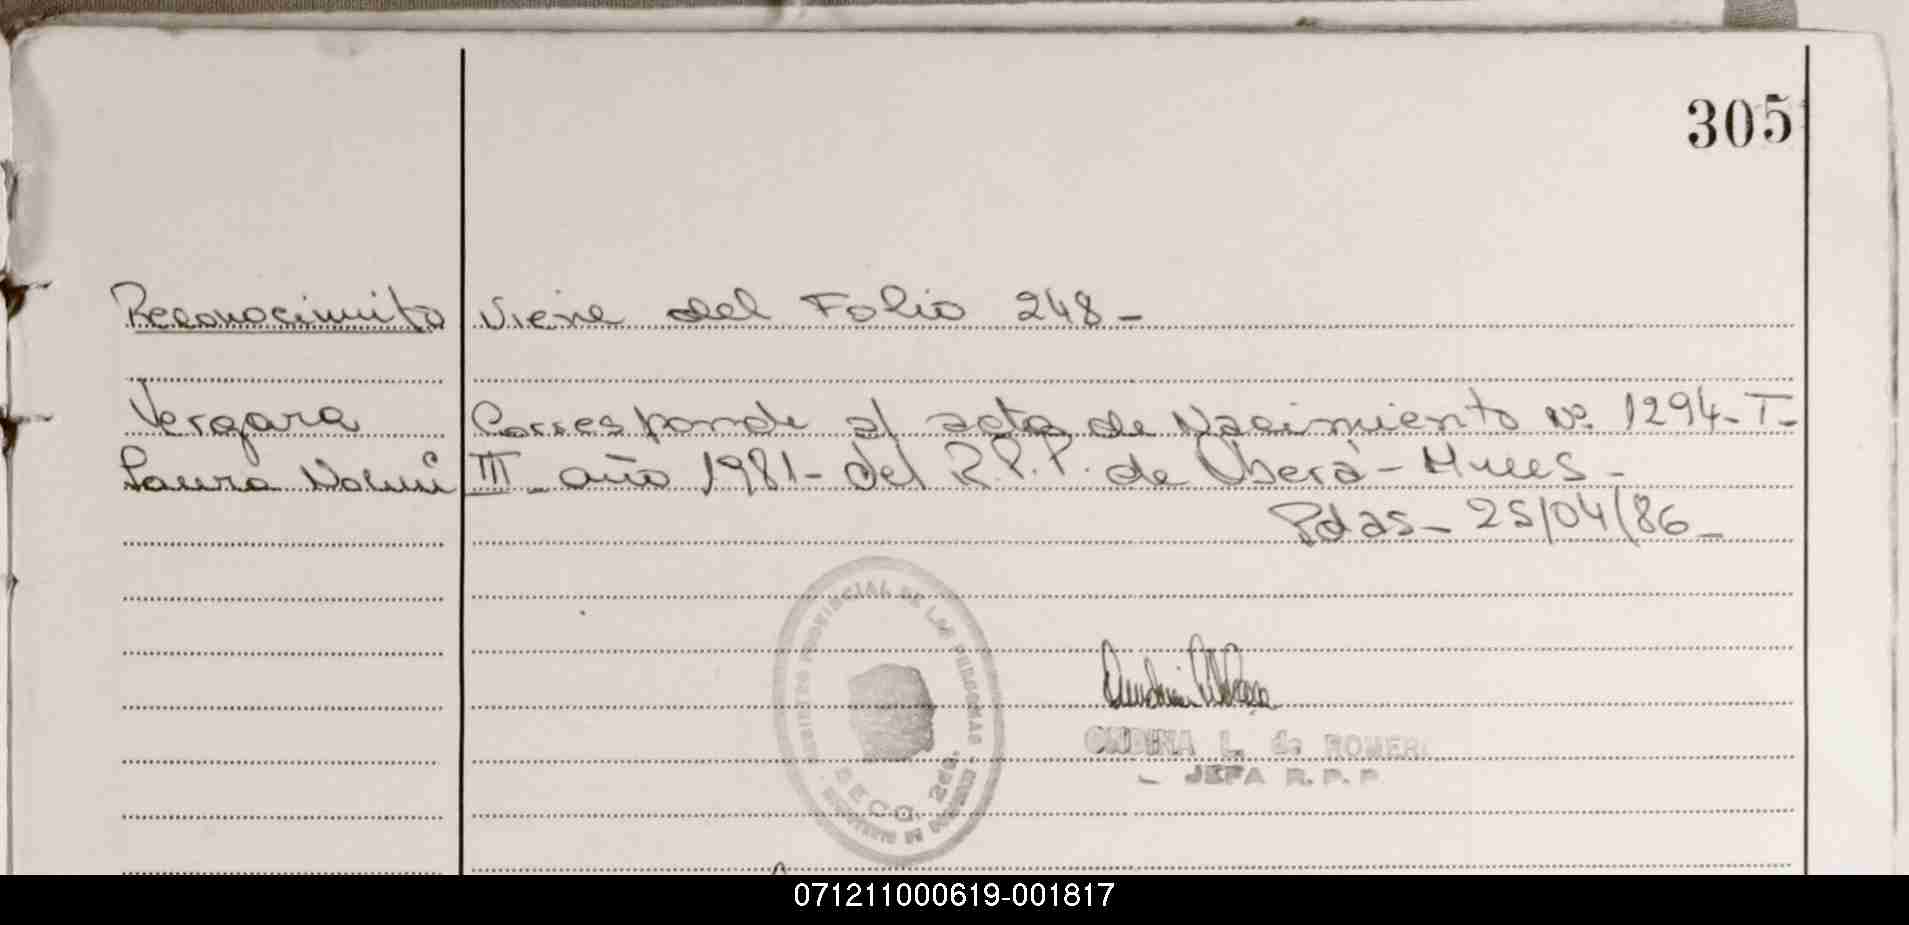 305
Reconocimiento Viene del Folio 248-
Vergara Corresponde al acta de Nacimiento Nº 1294-T-
Laura Noemí III-año 1981-del R.P.P. de Oberá-Mnes-
Pdas- 25/04/86-
REGISTRO PROVINCIAL DE LAS PERSONAS
SECC. 2da.
MINISTERIO DE GOBIERNO
ONDINA L. de ROMERO
JEFA R. P. P.
071211000619-001817